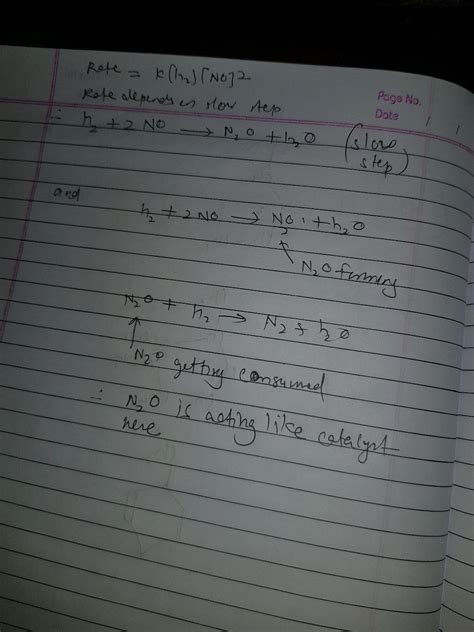 Rate = K[h₂][NO]²
Page No.
Rate depends on slow step
Date / /
∴ h₂ + 2 NO → N₂O + h₂O (slow step)
and
h₂ + 2NO → N₂O + h₂O
N₂O forming
N₂O + h₂ → N₂ + h₂O
N₂O getting consumed
∴ N₂O is acting like catalyst
here